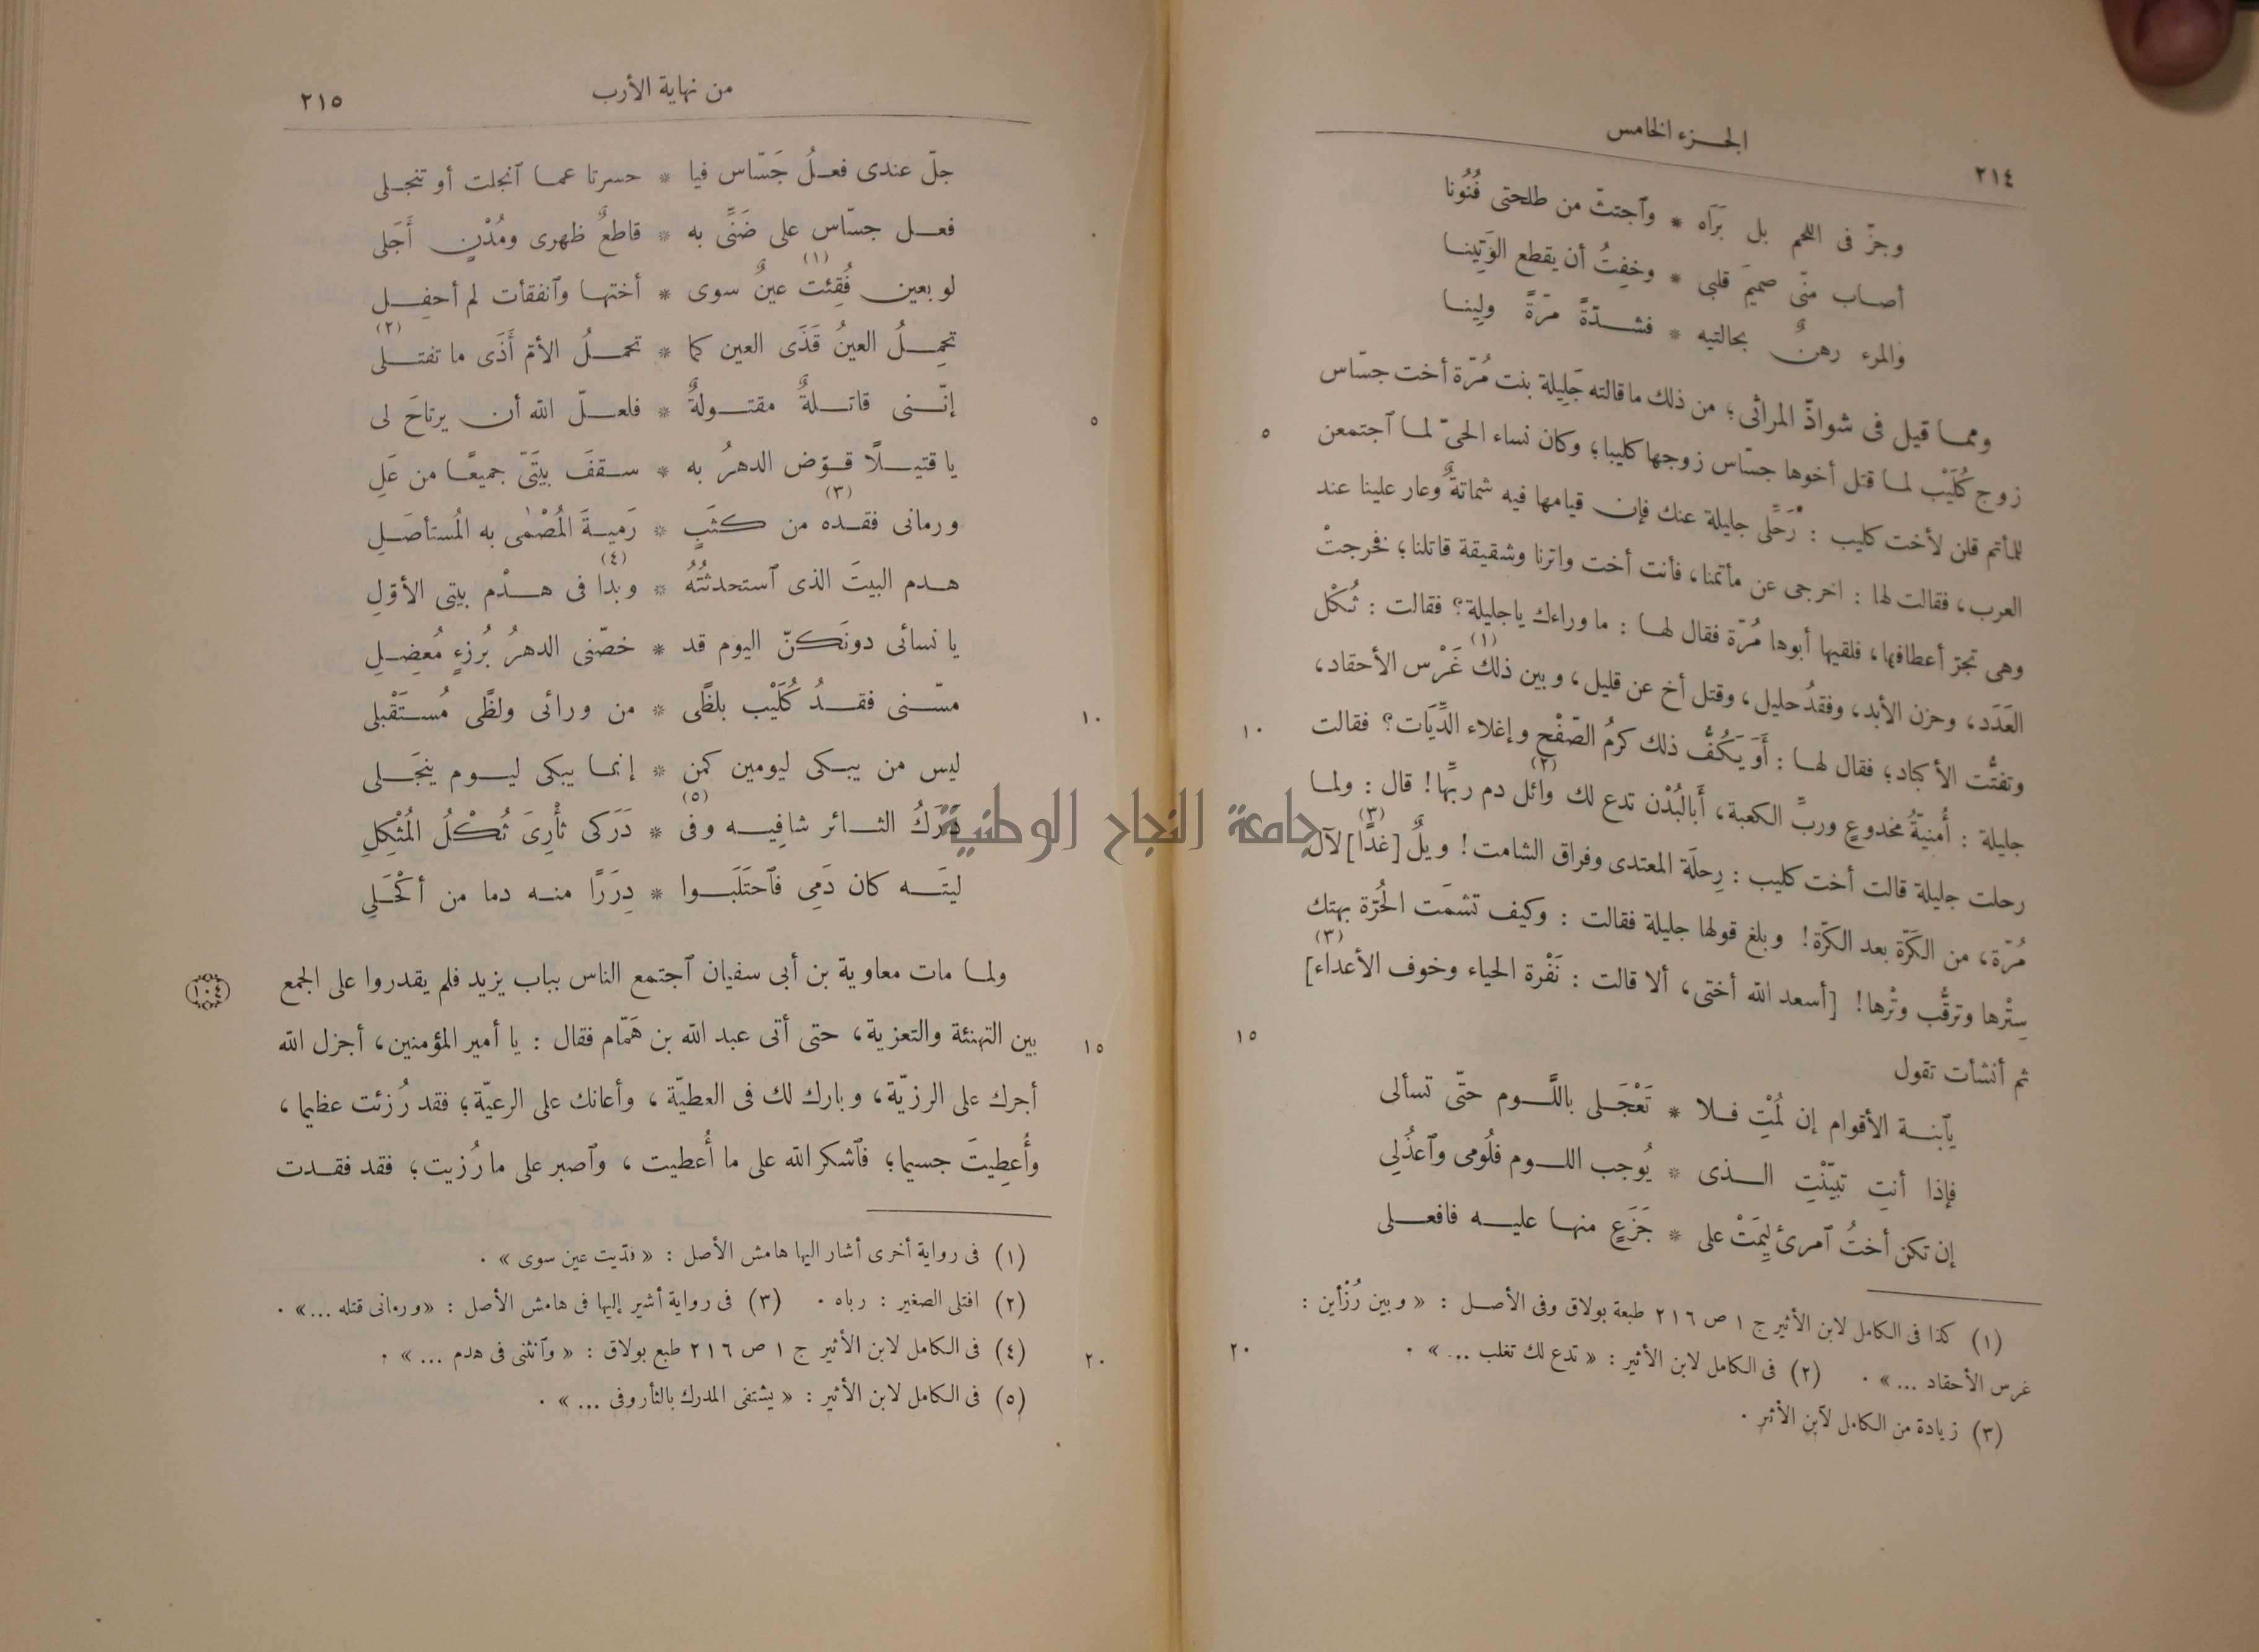 ٢١٤
الجزء الخامس
وجزّ فى اللحم بل بَرَاه * وٱجتثّ من طلحتى فُنُونا
أصاب منّى صميمَ قلبى * وخِفتُ أن يقطع الوَتِينا
والمرء رهنٌ بحالتيه * فشدّةً مرّةً ولِينا
ومما قيل فى شواذّ المراثى؛ من ذلك ما قالته جَلِيلة بنت مُرّة أخت جسّاس
زوج كُلَيْب لما قتل أخوها جسّاس زوجها كليبا؛ وكان نساء الحىّ لما ٱجتمعن
للمأتم قلن لأخت كليب : رَحِّلى جليلة عنك فإن قيامها فيه شماتةٌ وعار علينا عند
العرب، فقالت لها : اخرجى عن مأتمنا، فأنت أخت واترنا وشقيقة قاتلنا؛ فخرجتْ
وهى تجرّ أعطافها، فلقيها أبوها مُرّة فقال لها : ما وراءك ياجليلة؟ فقالت : ثُكْل
العَدَد، وحزن الأبد، وفقدُ حليل، وقتل أخ عن قليل، وبين ذلك (١) غَرْس الأحقاد،
وتفتُّت الأكباد؛ فقال لها : أَوَ يَكُفُّ ذلك كرمُ الصّفْح وإغلاء الدِّيَات؟ فقالت
جليلة : أُمنيّةُ مخدوعٍ وربِّ الكعبة، أَبالبُدْن تدع لك وائل (٢) دم ربّها! قال : ولما
رحلت جليلة قالت أخت كليب : رِحلَة المعتدى وفراق الشامت! ويلٌ [غدًا] (٣) لآل
مُرّة، من الكَرّة بعد الكَرّة! وبلغ قولها جليلة فقالت : وكيف تشمَت الحُرّة بهتك
سِتْرها وترقُّب وتْرها! [أسعد الله أختى، ألا قالت : نَفْرة الحياء وخوف الأعداء] (٣)
ثم أنشأت تقول
يٱبنة الأقوام إن لُمْتِ فلا * تَعْجَلى باللَّوم حتّى تسألى
فإذا أنتِ تبيّنْتِ الذى * يُوجب اللوم فلُومى وٱعذُلِى
إن تكن أختُ ٱمرئ لِيمَتْ على * جَزَعٍ منها عليه فافعلى
(١) كذا فى الكامل لابن الأثير ج ١ ص ٢١٦ طبعة بولاق وفى الأصل : « وبين رُزْأين :
غرس الأحقاد ... » . (٢) فى الكامل لابن الأثير : « تدع لك تغلب ... » .
(٣) زيادة من الكامل لآبن الأثير .
٥
١٠
١٥
٢٠
من نهاية الأرب
٢١٥
جلّ عندى فعلُ جَسّاس فيا * حسرتا عما ٱنجلت أو تنجلى
فعل جسّاس على ضَنِّى به * قاطعٌ ظهرى ومُدْنٍ أَجَلى
لو بعين فُقِئت (١) عينٌ سوى * أختها وٱنفقأت لم أحفِل
تحمِلُ العينُ قَذَى العين كما * تحملُ الأمّ أَذَى ما تفتلى (٢)
إنّنى قاتلةٌ مقتولةٌ * فلعلّ الله أن يرتاحَ لى
يا قتيلًا قوّض الدهرُ به * سقفَ بيتَىّ جميعًا من عَلِ
ورمانى فقده (٣) من كثَبٍ * رَميةَ المُصْمٰى به المُستأصَلِ
هدم البيتَ الذى ٱستحدثتُهُ * وبدا (٤) فى هدْم بيتى الأوّلِ
يا نسائى دونَكنّ اليوم قد * خصّنى الدهرُ بُرزءٍ مُعضِلِ
مسّنى فقدُ كُلَيْب بلظًى * من ورائى ولظًى مُستَقْبلى
ليس من يبكى ليومين كمن * إنما يبكى ليوم ينجَلى
دَرَكُ الثائر شافِيه وفى (٥) * دَرَكى ثأْرِىَ ثُكْلُ المُثْكِلِ
ليتَه كان دَمِى فٱحتَلَبوا * دِرَرًا منه دما من أكْحَلِى
ولما مات معاوية بن أبى سفيان ٱجتمع الناس بباب يزيد فلم يقدروا على الجمع
بين التهنئة والتعزية، حتى أتى عبد الله بن هَمّام فقال : يا أمير المؤمنين، أجزل الله
أجرك على الرزيّة، وبارك لك فى العطيّة ، وأعانك على الرعيّة؛ فقد رُزئت عظيما ،
وأُعطِيتَ جسيما؛ فٱشكر الله على ما أُعطيت ، وٱصبر على ما رُزيت؛ فقد فقدت
(١) فى رواية أخرى أشار اليها هامش الأصل : « فدّيت عين سوى » .
(٢) افتلى الصغير : رباه . (٣) فى رواية أشير إليها فى هامش الأصل : «ورمانى قتله ...» .
(٤) فى الكامل لابن الأثير ج ١ ص ٢١٦ طبع بولاق : « وٱنثنى فى هدم ... » .
(٥) فى الكامل لابن الأثير : « يشتفى المدرك بالثأر وفى ... » .
٥
١٠
١٥
٢٠
١٠٤
جامعة النجاح الوطنية